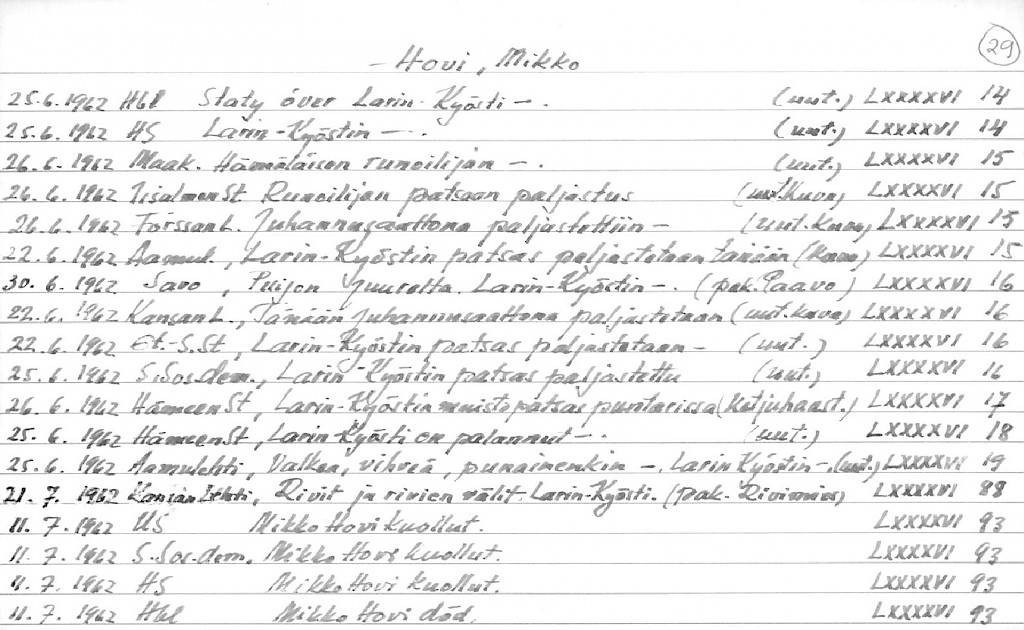 29
- Hovi, Mikko
25.6.1962 Hbl Staty över Larin-Kyösti -. (uut.) LXXXXVI 14
25.6.1962 HS Larin-Kyöstin -. (uut.) LXXXXVI 14
26.6.1962 Maak. Hämäläisen runoilijan -. (uut.) LXXXXVI 15
26.6.1962 Iisalmen St Runoilijan patsaan paljastus (uut.Kuva) LXXXXVI 15
26.6.1962 Forssan L. Juhannusaattona paljastettiin - (uut.Kuva) LXXXXVI 15
22.6.1962 Aamul., Larin-Kyöstin patsas paljastetaan tänään (Kuva) LXXXXVI 15
30.6.1962 Savo, Puijon juurelta. Larin-Kyöstin -. (pak.Paavo) LXXXXVI 16
22.6.1962 Kansan L., Tänään juhannusaattona paljastetaan (uut.Kuva) LXXXXVI 16
22.6.1962 Et.-S.St, Larin-Kyöstin patsas paljastetaan - (uut.) LXXXXVI 16
25.6.1962 S.Sos.dem., Larin-Kyöstin patsas paljastettu (uut.) LXXXXVI 16
26.6.1962 Hämeen St, Larin-Kyöstin muistopatsas puntarissa (Katjuhaast.) LXXXXVI 17
25.6.1962 Hämeen St, Larin-Kyösti on palannut -. (uut.) LXXXXVI 18
25.6.1962 Aamulehti, Valkea, vihreä, punainenkin -. Larin Kyöstin -. (uut.) LXXXXVI 19
21.7.1962 Kansan Lehti, Rivit ja rivien välit. Larin-Kyösti. (pak. Rivimies) LXXXXVI 88
11.7.1962 US Mikko Hovi kuollut. LXXXXVI 93
11.7.1962 S.Sos.dem. Mikko Hovi kuollut. LXXXXVI 93
11.7.1962 HS Mikko Hovi kuollut. LXXXXVI 93
11.7.1962 Hbl Mikko Hovi död. LXXXXVI 93